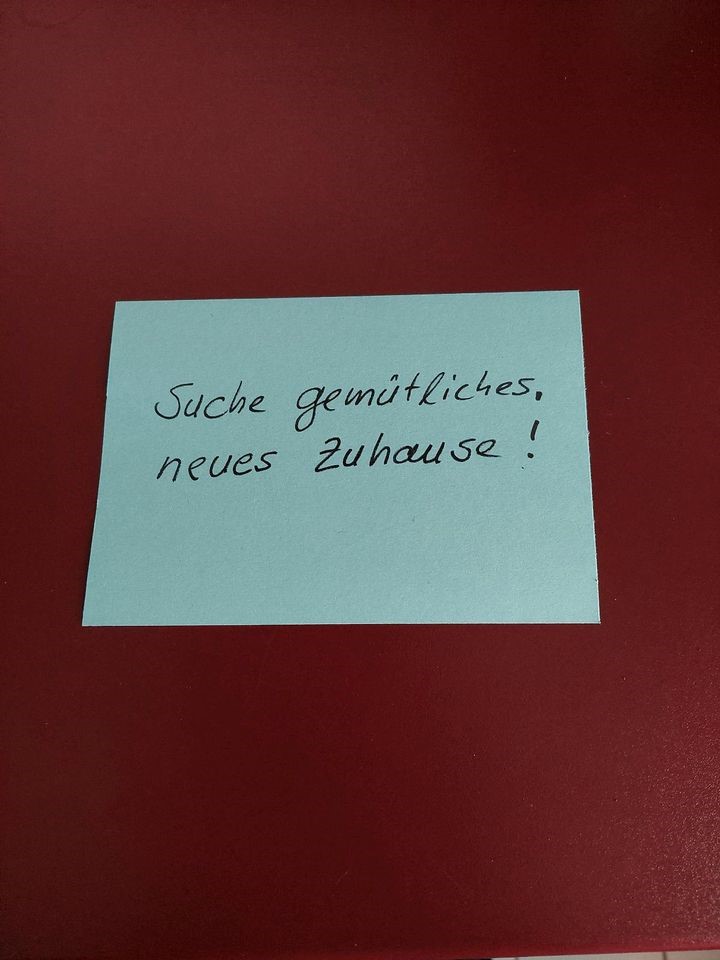 Suche gemütliches,
neues Zuhause!